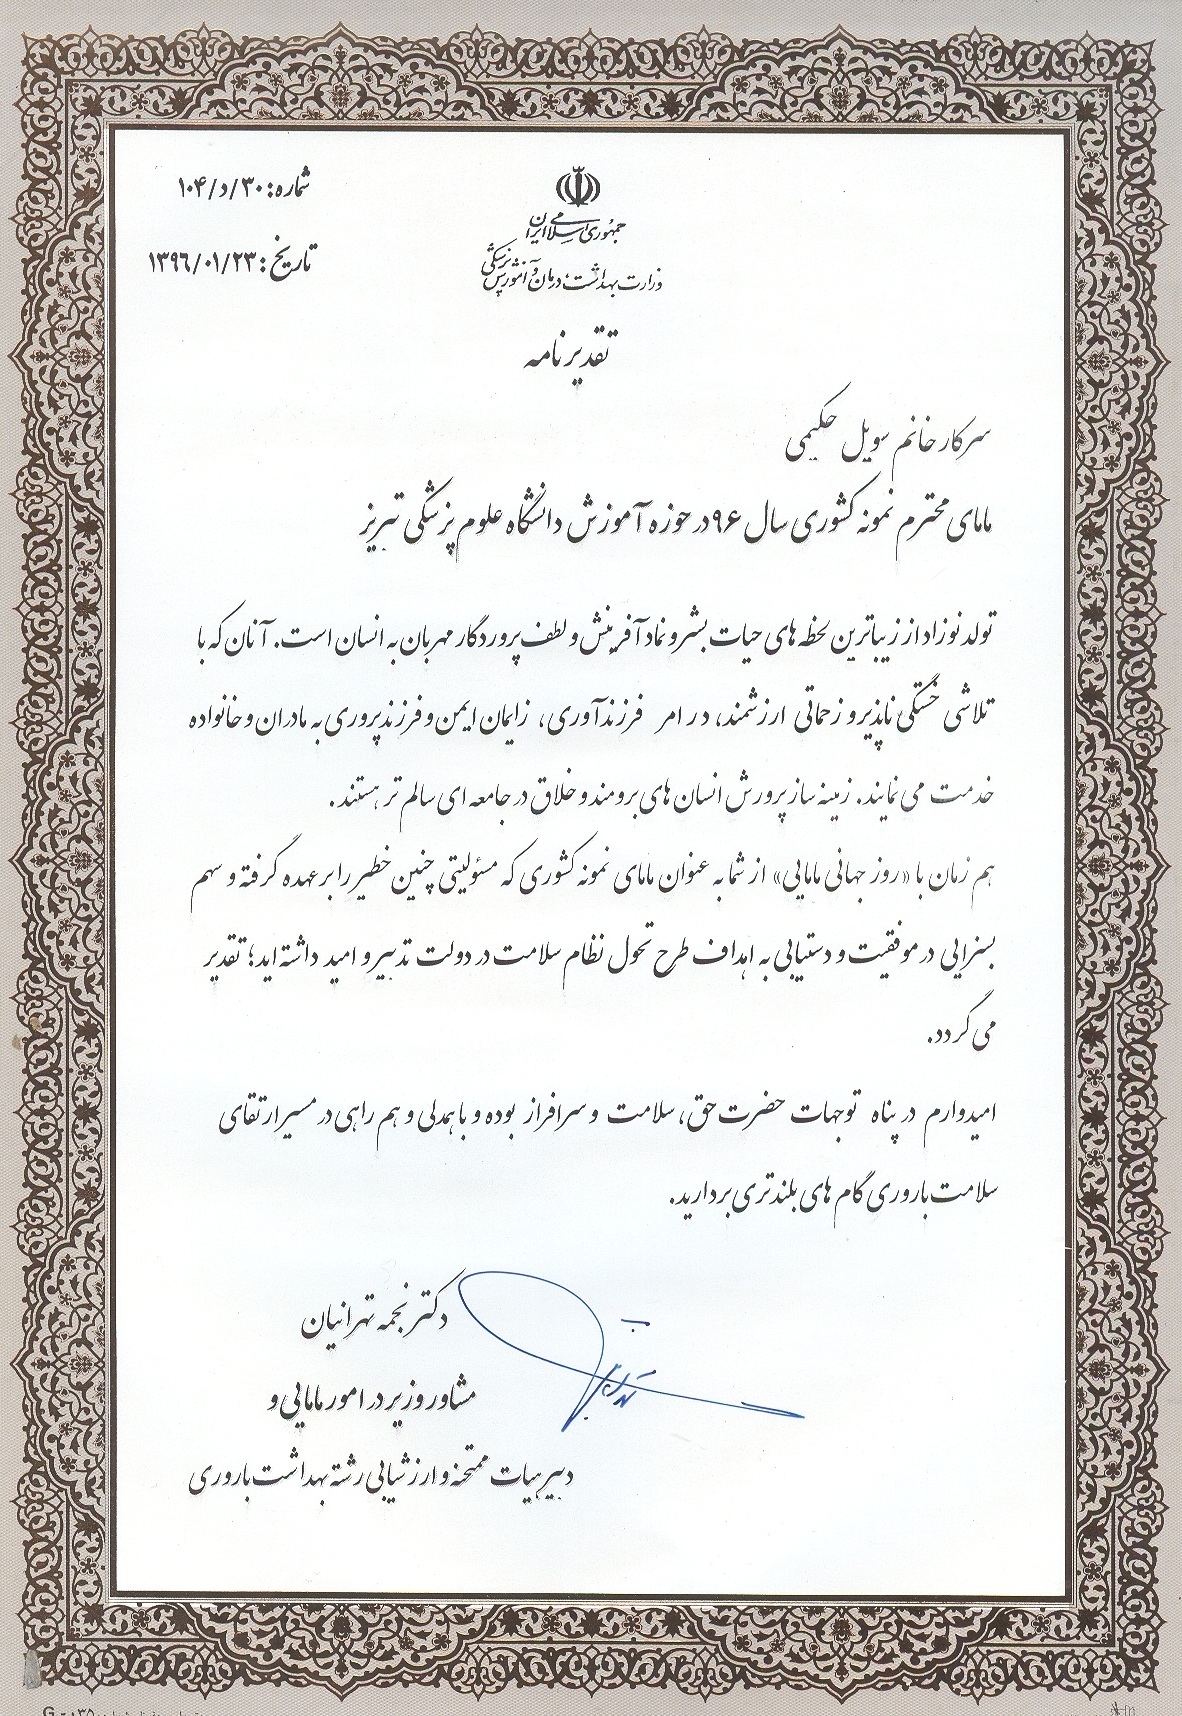 شماره: ۱۰۴/د/۳۰
تاریخ: ۱۳۹۶/۰۱/۲۳
جمهوری اسلامی ایران
وزارت بهداشت، درمان و آموزش پزشکی
تقدیرنامه
سرکار خانم سویل حکیمی
مامای محترم نمونه کشوری سال ۹۶ در حوزه آموزش دانشگاه علوم پزشکی تبریز
تولد نوزاد از زیباترین لحظه های حیات بشر و نماد آفرینش و لطف پروردگار مهربان به انسان است. آنان که با
تلاشی خستگی ناپذیر و زحماتی ارزشمند، در امر فرزندآوری، زایمان ایمن و فرزندپروری به مادران و خانواده
خدمت می نمایند. زمینه ساز پرورش انسان های برومند و خلاق در جامعه ای سالم تر هستند.
هم زمان با «روز جهانی مامایی» از شما به عنوان مامای نمونه کشوری که مسؤلیتی چنین خطیر را بر عهده گرفته و سهم
بسزایی در موفقیت و دستیابی به اهداف طرح تحول نظام سلامت در دولت تدبیر و امید داشته اید؛ تقدیر
می گردد.
امیدوارم در پناه توجهات حضرت حق، سلامت و سرافراز بوده و با همدلی و هم راهی در مسیر ارتقای
سلامت باروری گام های بلندتری بردارید.
دکتر نجمه تهرانیان
مشاور وزیر در امور مامایی و
دبیر هیات ممتحنه و ارزشیابی رشته بهداشت باروری